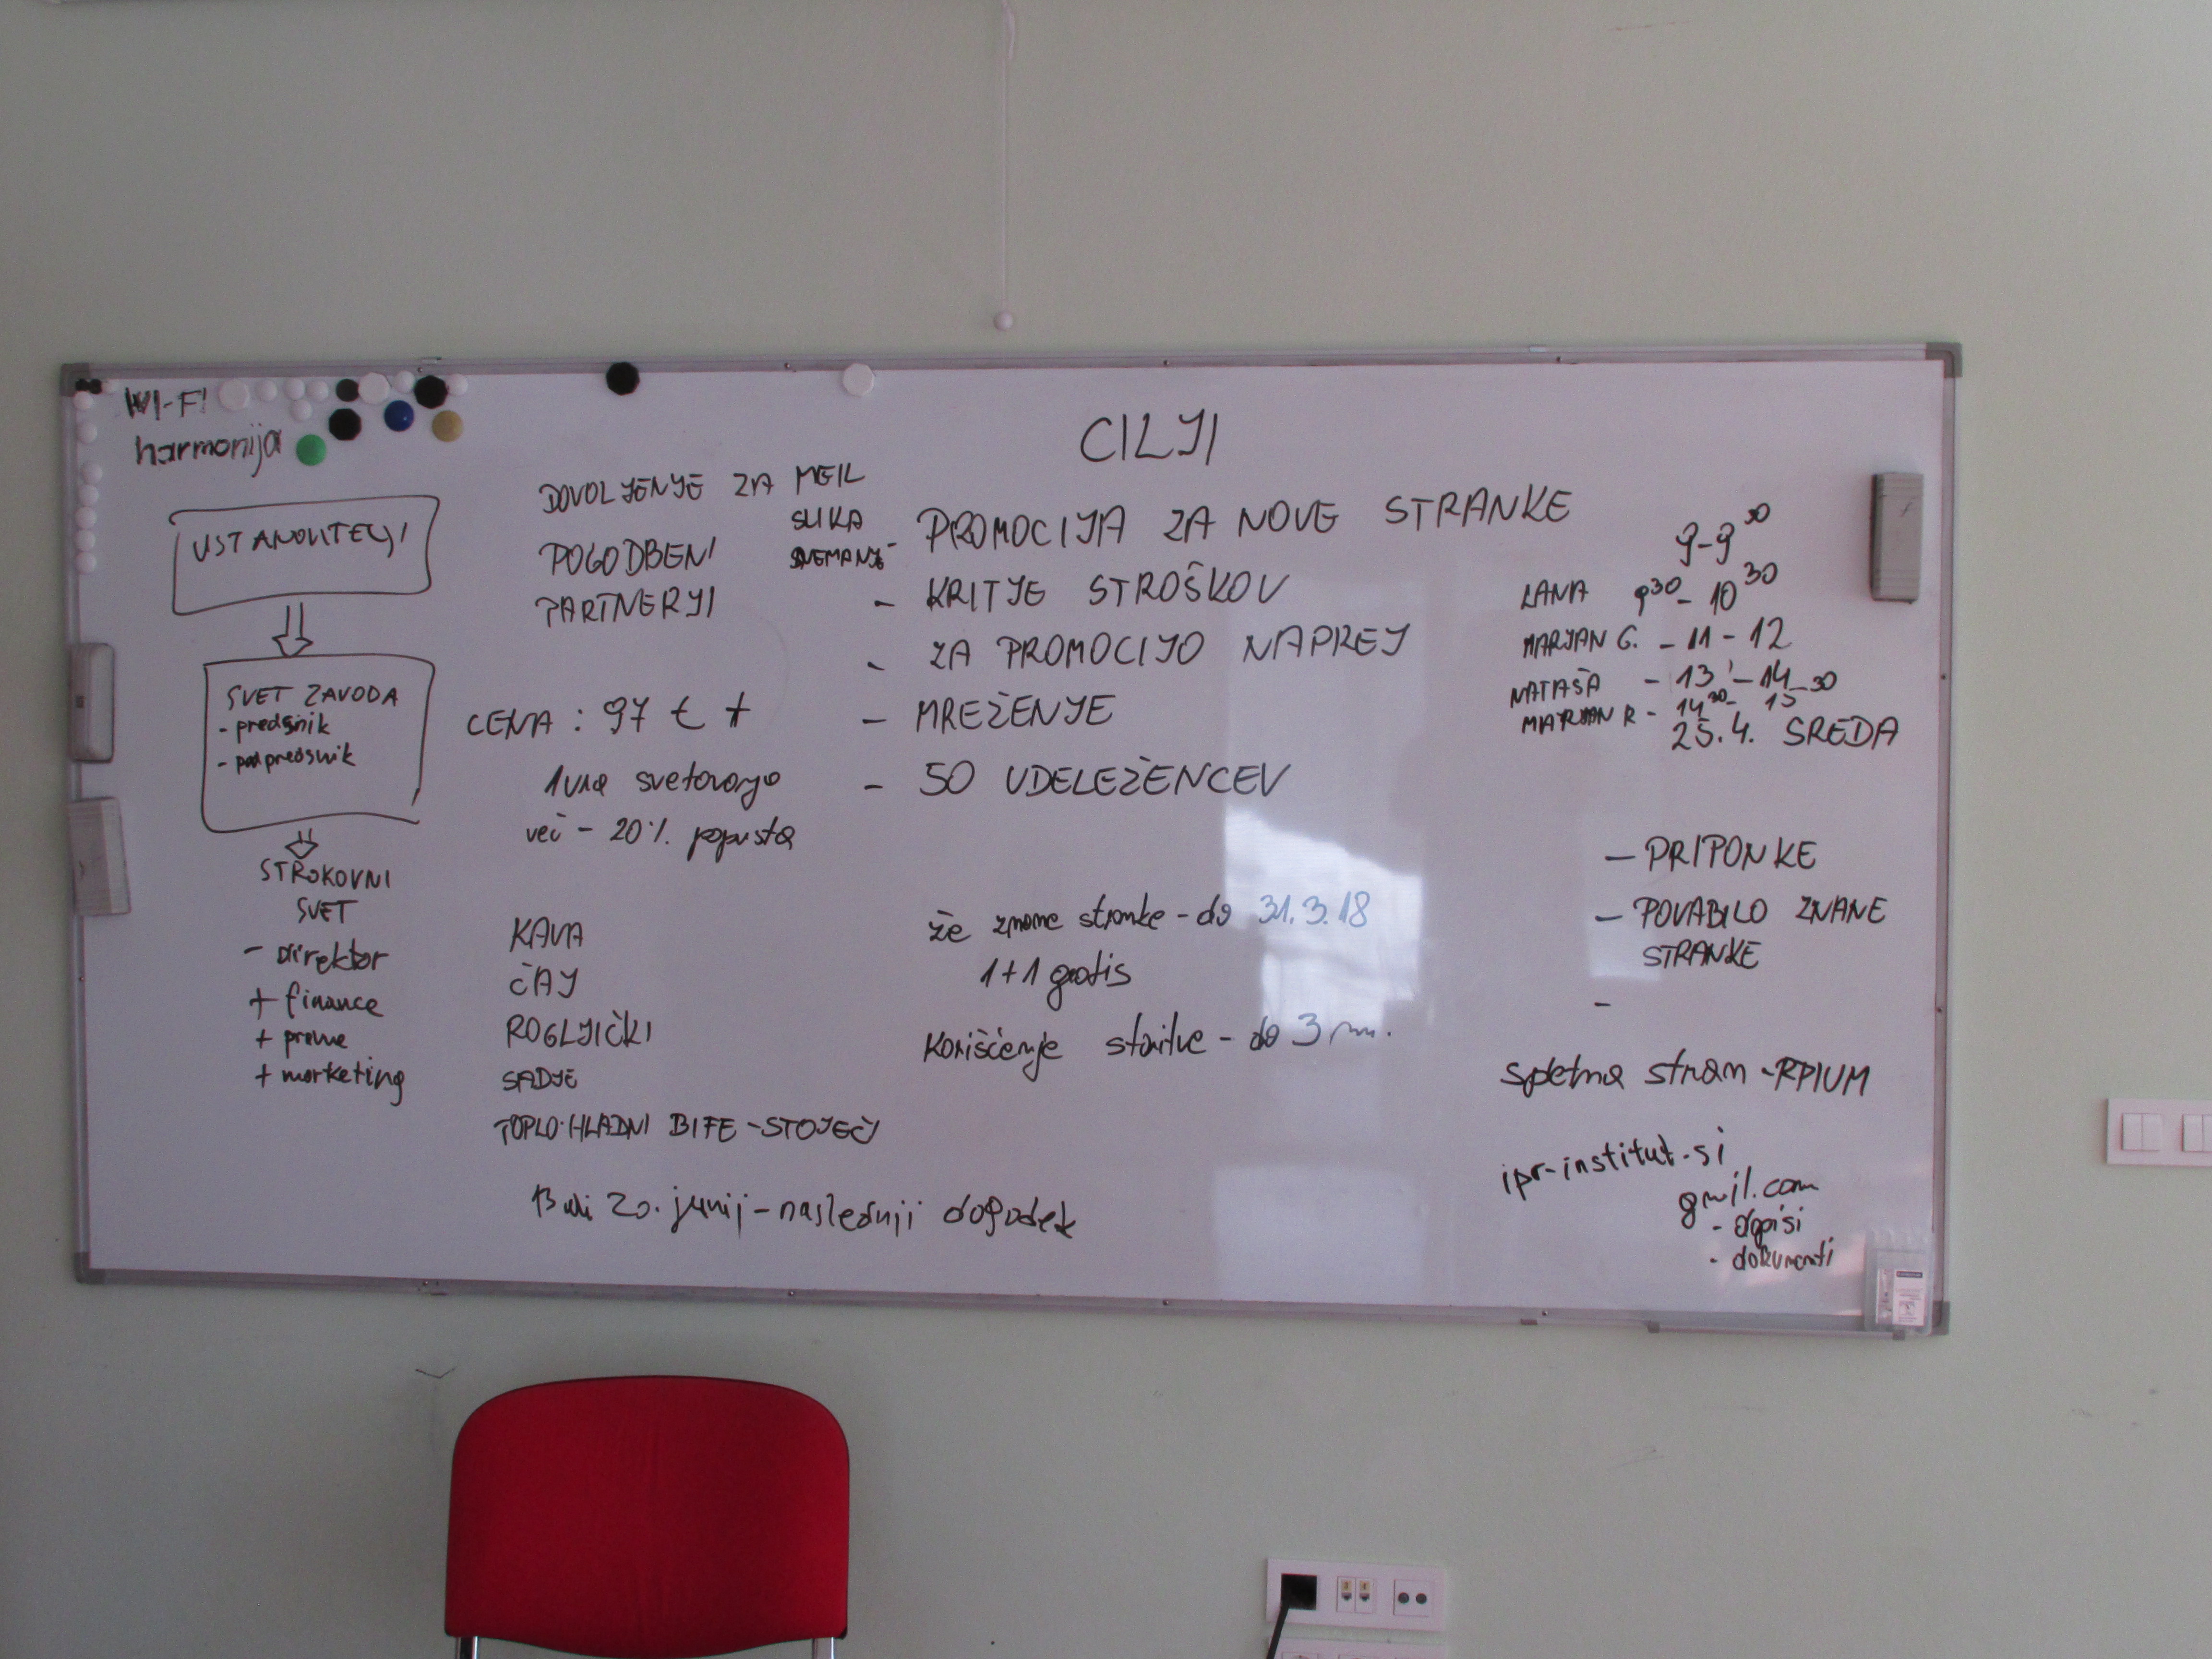 WI-FI
harmonija
USTANOVITELJI
SVET ZAVODA
- predsnik
- podpredsnik
STROKOVNI
SVET
- direktor
+ finance
+ pravne
+ marketing
DOVOLJENJE ZA MEIL
SLIKA
SNEMANJE
POGODBENI
PARTNERJI
CENA : 97 € +
1 ura svetovanja
več - 20%. popusta
KAVA
ČAJ
ROGLJIČKI
SADJE
TOPLO-HLADNI BIFE - STOJEČI
13 ali 20. junij - naslednji dogodek
CILJI
- PROMOCIJA ZA NOVE STRANKE
- KRITJE STROŠKOV
- ZA PROMOCIJO NAPREJ
- MREŽENJE
- 50 UDELEŽENCEV
že znane stranke - do 31.3.18
1+1 gratis
Koriščenje storitve - do 3
9-9³⁰
LANA 9³⁰ - 10³⁰
MARJAN G. - 11 - 12
NATAŠA - 13 - 14
MARJAN R - 14³⁰ - 15³⁰
25.4. SREDA
- PRIPONKE
- POVABILO ZNANE
STRANKE
-
spletna stran - RPIUM
ipr-institut.si
gmil.com
- dopisi
- dokumenti